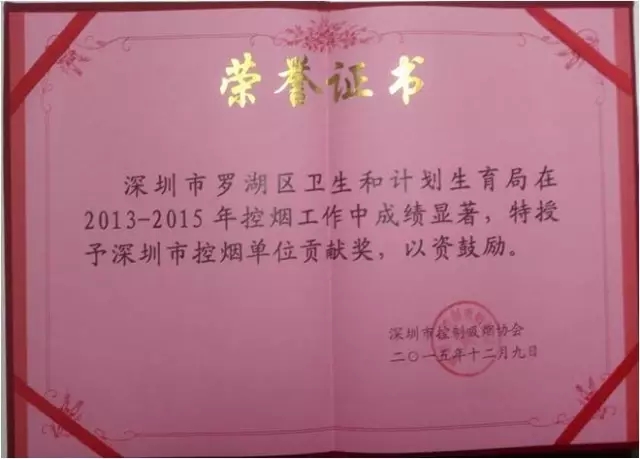 荣誉证书
深圳市罗湖区卫生和计划生育局在
2013-2015年控烟工作中成绩显著，特授
予深圳市控烟单位贡献奖，以资鼓励。
深圳市控制吸烟协会
二〇一五年十二月九日